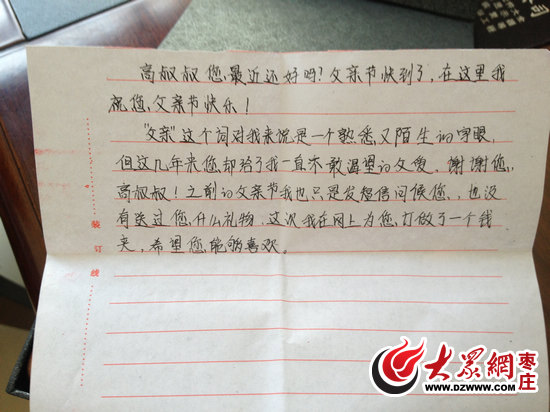 高叔叔您,最近还好吗?父亲节快到了,在这里我
祝您,父亲节快乐!
"父亲"这个词对我来说是一个熟悉又陌生的字眼,
但这几年来您,却给了我一直不敢渴望的父爱,谢谢您,
高叔叔!之前的父亲节我也只是发短信问候您,,也没
有送过您,什么礼物,这次我在网上为您,订做了一个钱
夹,希望您,能够喜欢。
装
订
线
大众網
枣庄
WWW.DZWWW.COM